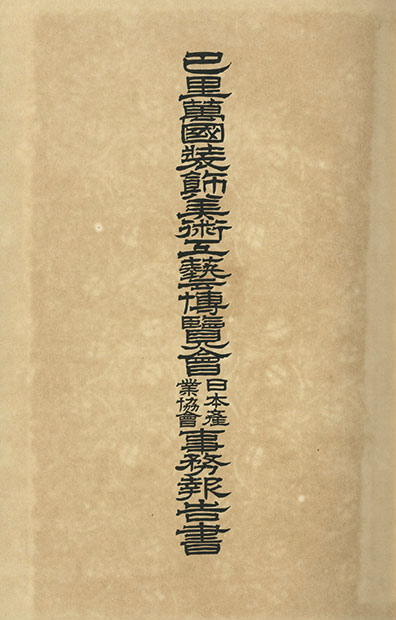 巴里萬國装飾美術工藝博覽會日本產業協會事務報告書